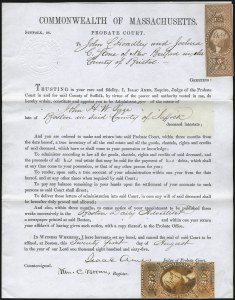 COMMONWEALTH OF MASSACHUSETTS.
PROBATE COURT.
SUFFOLK, SS.
To John C. and Joshua
C. Stone of New Bedford in the
County of Bristol
GREETING:
TRUSTING in your care and fidelity, I, ISAAC AMES, Esquire, Judge of the Probate
Court in and for said County of Suffolk, by virtue of the power and authority vested in me, do
hereby constitute and appoint you to be Administrators of the estate of
John H. W.
late of Boston in said County of Suffolk
deceased intestate:
And you are ordered to make and return into said Probate Court, within three months from the
date hereof, a true inventory of all the real estate and all the goods, chattels, rights and credits
of said deceased, which have or shall come to your possession or knowledge.
To administer according to law all the goods, chattels, rights and credits of said deceased, and
the proceeds of all real estate that may be sold for the payment of debts, which shall
at any time come to your possession, or that of any other person for you:
To render upon oath a true account of your administration within one year, and at any other
times when required by said Court:
To pay any balance remaining in your hands upon the settlement of your accounts to such persons
as said Court shall direct:
To deliver these letters of administration into said Court, in case any will of said deceased shall
be hereafter duly proved and allowed.
And also, within three months, to cause notice of your appointment to be published
weeks successively in the Boston Daily Advertiser
newspaper printed in Boston, and return into said Probate Court within one year
your affidavit of having given such notice, with a copy thereof, to the Probate Office.
IN WITNESS WHEREOF, I have hereunto set my hand, and caused the seal of said Court to be affixed,
at Boston, this Twenty first day of August
in the year of our Lord one thousand eight hundred and sixty-five.
Isaac Ames
Judge of Probate Court.
Commissioned.
Wm. C. Brown, Register.